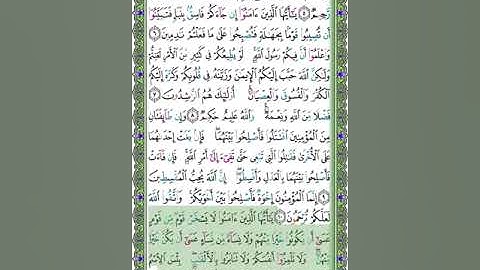 رَّحِيمٌ ٥ يَٰٓأَيُّهَا ٱلَّذِينَ ءَامَنُوٓا۟ إِن جَآءَكُمْ فَاسِقٌۢ بِنَبَإٍ فَتَبَيَّنُوٓا۟
أَن تُصِيبُوا۟ قَوْمًۢا بِجَهَٰلَةٍ فَتُصْبِحُوا۟ عَلَىٰ مَا فَعَلْتُمْ نَٰدِمِينَ ٦
وَٱعْلَمُوٓا۟ أَنَّ فِيكُمْ رَسُولَ ٱللَّهِ ۚ لَوْ يُطِيعُكُمْ فِى كَثِيرٍ مِّنَ ٱلْأَمْرِ لَعَنِتُّمْ
وَلَٰكِنَّ ٱللَّهَ حَبَّبَ إِلَيْكُمُ ٱلْإِيمَٰنَ وَزَيَّنَهُۥ فِى قُلُوبِكُمْ وَكَرَّهَ إِلَيْكُمُ
ٱلْكُفْرَ وَٱلْفُسُوقَ وَٱلْعِصْيَانَ ۚ أُو۟لَٰٓئِكَ هُمُ ٱلرَّٰشِدُونَ ٧
فَضْلًا مِّنَ ٱللَّهِ وَنِعْمَةً ۚ وَٱللَّهُ عَلِيمٌ حَكِيمٌ ٨ وَإِن طَآئِفَتَانِ
مِنَ ٱلْمُؤْمِنِينَ ٱقْتَتَلُوا۟ فَأَصْلِحُوا۟ بَيْنَهُمَا ۖ فَإِنۢ بَغَتْ إِحْدَىٰهُمَا
عَلَى ٱلْأُخْرَىٰ فَقَٰتِلُوا۟ ٱلَّتِى تَبْغِى حَتَّىٰ تَفِىٓءَ إِلَىٰٓ أَمْرِ ٱللَّهِ ۚ فَإِن فَآءَتْ
فَأَصْلِحُوا۟ بَيْنَهُمَا بِٱلْعَدْلِ وَأَقْسِطُوٓا۟ ۖ إِنَّ ٱللَّهَ يُحِبُّ ٱلْمُقْسِطِينَ
٩ إِنَّمَا ٱلْمُؤْمِنُونَ إِخْوَةٌ فَأَصْلِحُوا۟ بَيْنَ أَخَوَيْكُمْ ۚ وَٱتَّقُوا۟ ٱللَّهَ
لَعَلَّكُمْ تُرْحَمُونَ ١٠ يَٰٓأَيُّهَا ٱلَّذِينَ ءَامَنُوا۟ لَا يَسْخَرْ قَوْمٌ مِّن قَوْمٍ
عَسَىٰٓ أَن يَكُونُوا۟ خَيْرًا مِّنْهُمْ وَلَا نِسَآءٌ مِّن نِّسَآءٍ عَسَىٰٓ أَن يَكُنَّ خَيْرًا
مِّنْهُنَّ ۖ وَلَا تَلْمِزُوٓا۟ أَنفُسَكُمْ وَلَا تَنَابَزُوا۟ بِٱلْأَلْقَٰبِ ۖ بِئْسَ ٱلِٱسْمُ